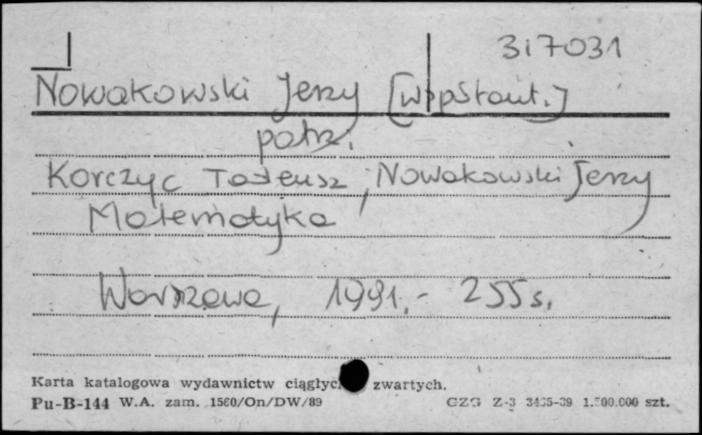 317031
Nowakowski Jerzy [współaut.]
patrz.
Korczyc Tadeusz, Nowakowski Jerzy
Matematyka
Warszawa, 1991.- 255 s.
Karta katalogowa wydawnictw ciągłyc zwartych.
Pu-B-144 W.A. zam. 1560/On/DW/89 CZG Z-3 1.500.000 szt.